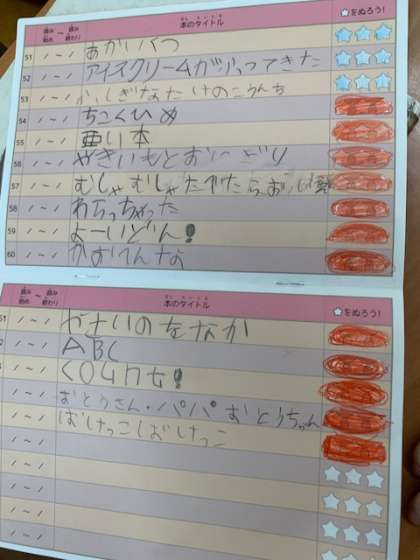 読み始め ～ 読み終わり 本のタイトル ☆をぬろう!
51 / ～ / あかいくつ
52 / ～ / アイスクリームがふってきた
53 / ～ / ふしぎなたけのこ
54 / ～ / ちこくひめ
55 / ～ / 悪い本
56 / ～ / やきいもとおにごり
57 / ～ / むしゃむしゃたべたら
58 / ～ / わらっちゃった
59 / ～ / よーいどん!
60 / ～ / かおてんなお
読み始め ～ 読み終わり 本のタイトル ☆をぬろう!
/ ～ / やさいのおなか
/ ～ / ABC
/ ～ / COUNt!
/ ～ / おとうさん・パパおとうちゃん
/ ～ / ばけっこばけっこ
/ ～ /
/ ～ /
/ ～ /
/ ～ /